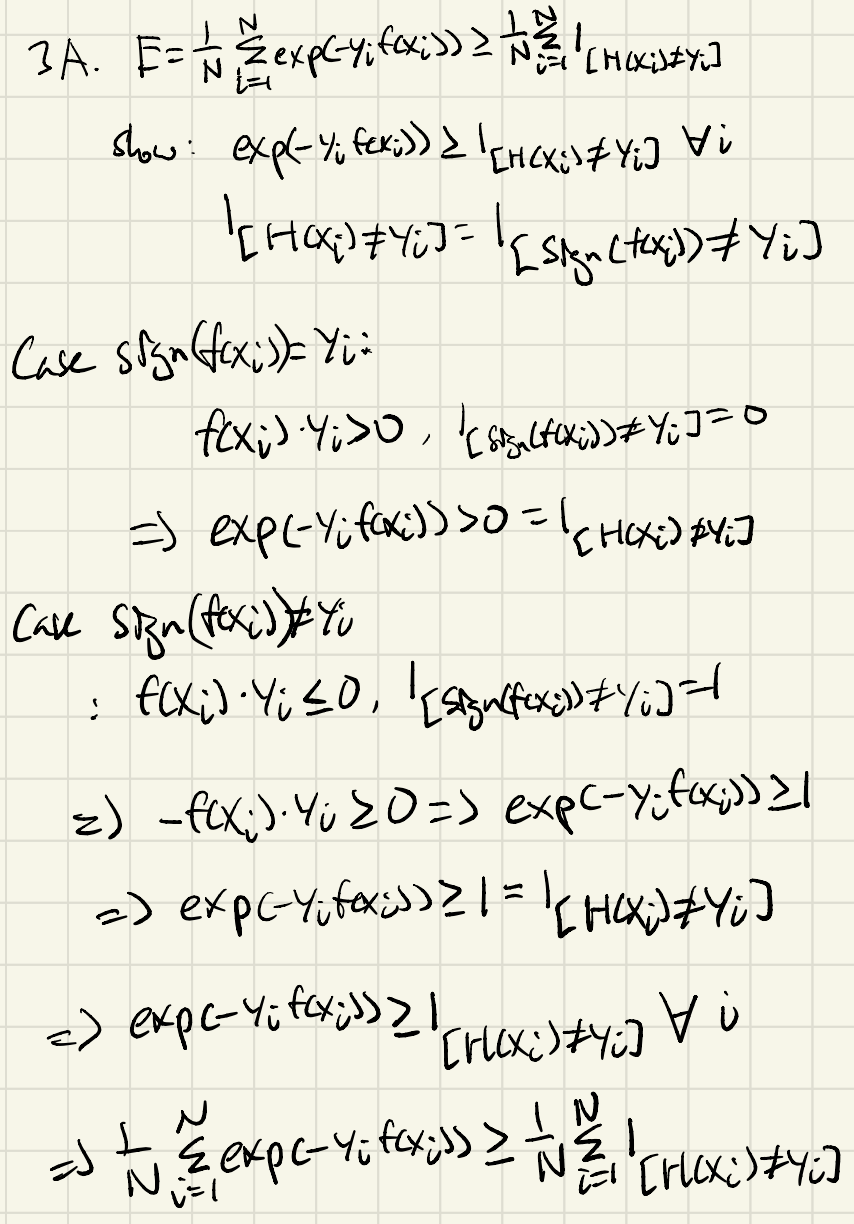 3A. E = 1/N Σ_{i=1}^{N} exp(-y_i f(x_i)) ≥ 1/N Σ_{i=1}^{N} 1_[H(x_i)≠y_i]
show: exp(-y_i f(x_i)) ≥ 1_[H(x_i)≠y_i] ∀ i
1_[H(x_i)≠y_i] = 1_[sign(f(x_i))≠y_i]
Case sign(f(x_i)) = y_i:
f(x_i)·y_i > 0, 1_[sign(f(x_i))≠y_i] = 0
=> exp(-y_i f(x_i)) > 0 = 1_[H(x_i)≠y_i]
Case sign(f(x_i)) ≠ y_i
: f(x_i)·y_i ≤ 0, 1_[sign(f(x_i))≠y_i] = 1
=> -f(x_i)·y_i ≥ 0 => exp(-y_i f(x_i)) ≥ 1
=> exp(-y_i f(x_i)) ≥ 1 = 1_[H(x_i)≠y_i]
=> exp(-y_i f(x_i)) ≥ 1_[H(x_i)≠y_i] ∀ i
=> 1/N Σ_{i=1}^{N} exp(-y_i f(x_i)) ≥ 1/N Σ_{i=1}^{N} 1_[H(x_i)≠y_i]